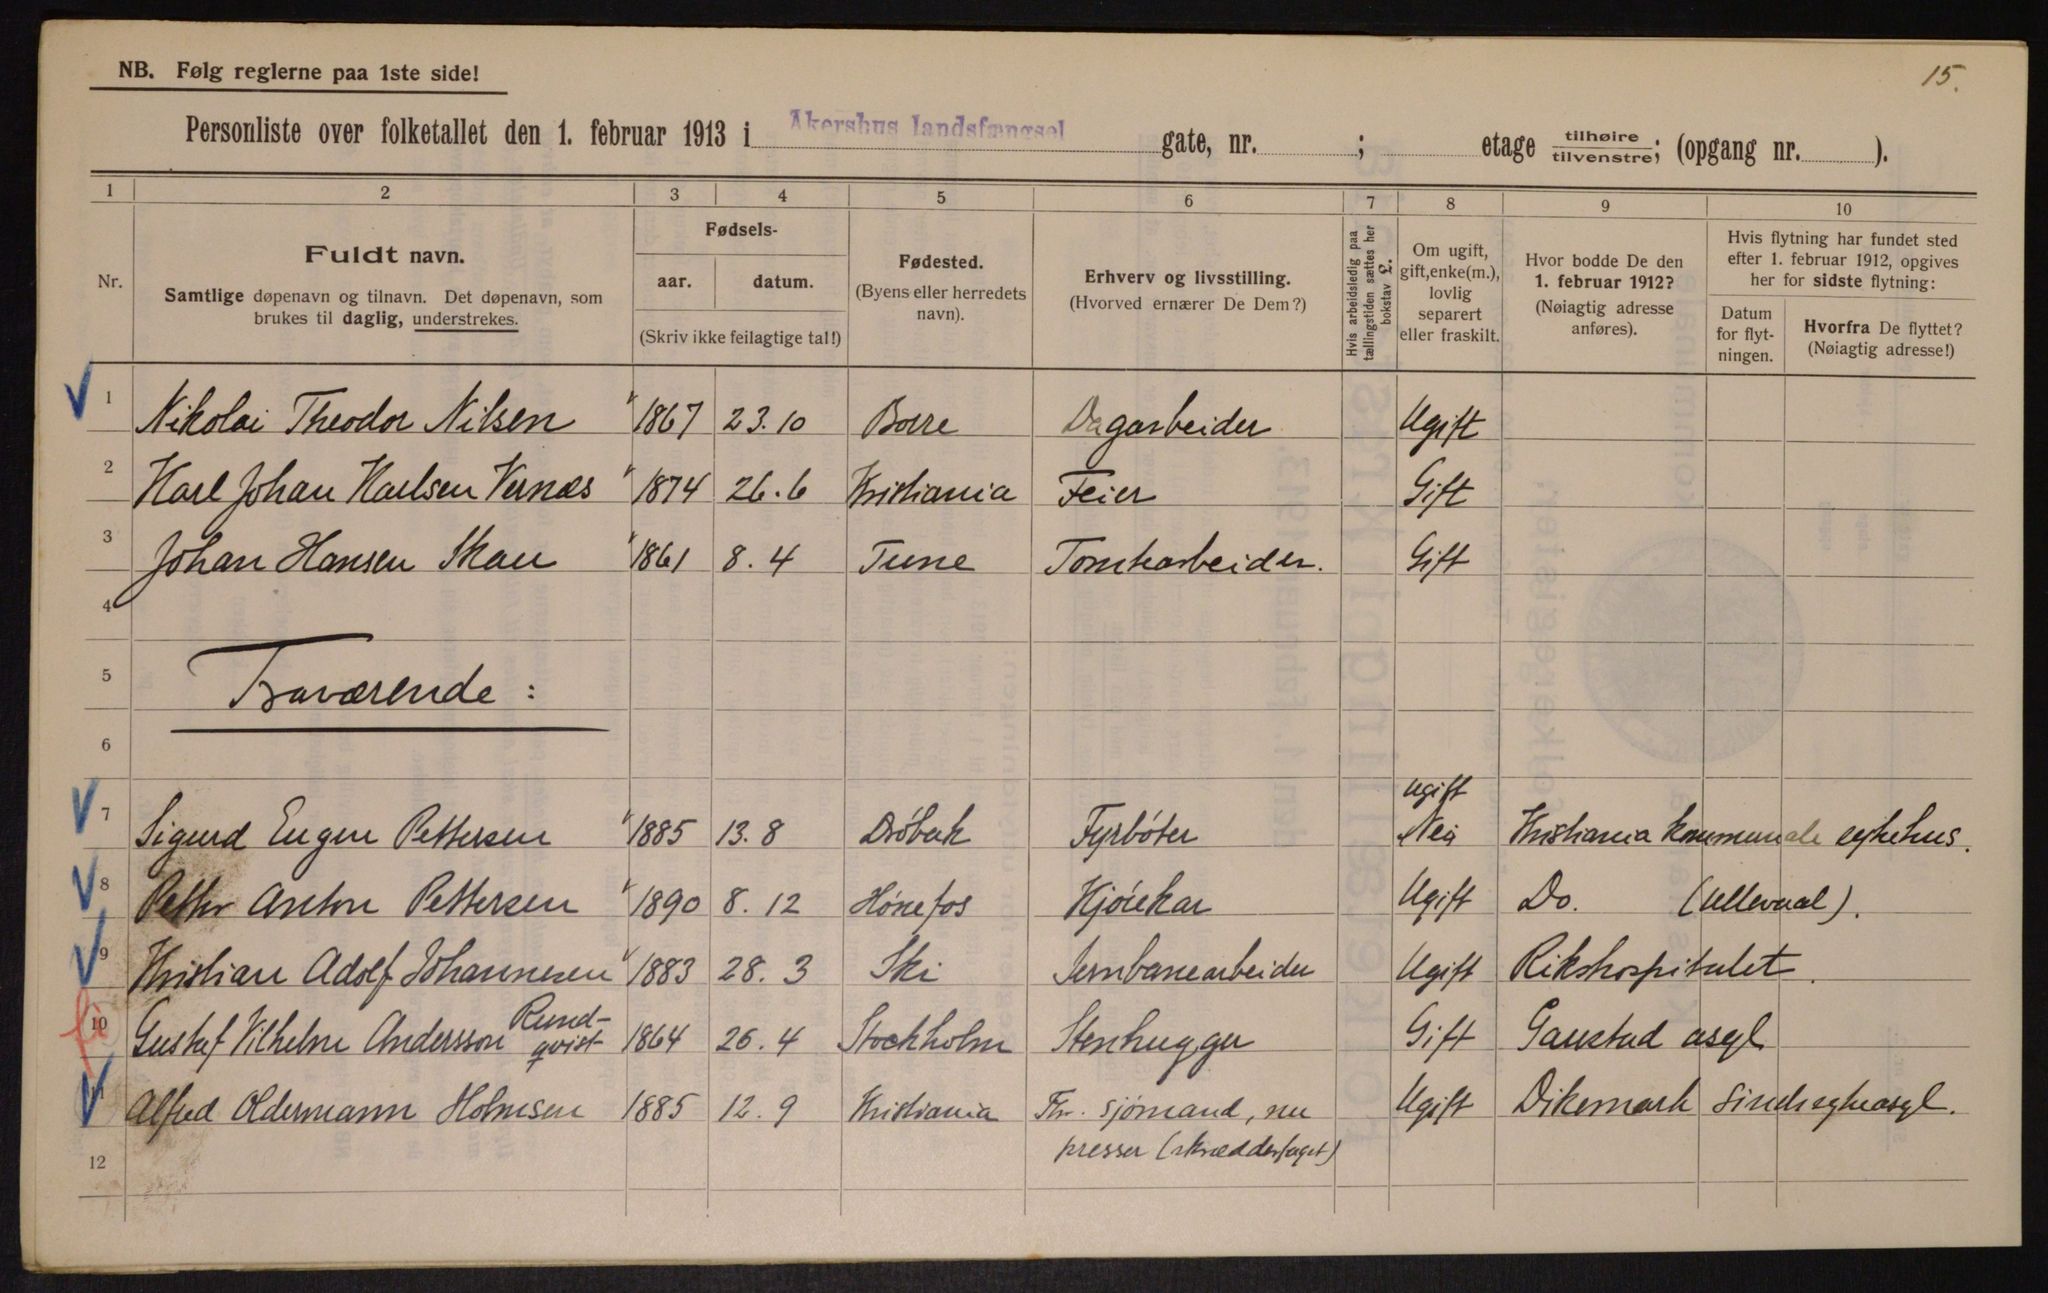 15.
NB. Følg reglerne paa 1ste side!
Personliste over folketallet den 1. februar 1913 i Akershus landsfængsel gate, nr. ; etage tilhøire/tilvenstre; (opgang nr. ).
1 2 3 4 5 6 7 8 9 10
Nr.
Fuldt navn.
Samtlige døpenavn og tilnavn. Det døpenavn, som
brukes til daglig, understrekes.
Fødsels-
aar. datum.
(Skriv ikke feilagtige tal!)
Fødested.
(Byens eller herredets
navn).
Erhverv og livsstilling.
(Hvorved ernærer De Dem?)
Hvis arbeidsledig paa
tællingstiden sættes her
bokstav L.
Om ugift,
gift, enke(m.),
lovlig
separert
eller fraskilt.
Hvor bodde De den
1. februar 1912?
(Nøiagtig adresse
anføres).
Hvis flytning har fundet sted
efter 1. februar 1912, opgives
her for sidste flytning:
Datum
for flyt-
ningen.
Hvorfra De flyttet?
(Nøiagtig adresse!)
1 Nikolai Theodor Nilsen 1867 23.10 Borre Dagarbeider Ugift
2 Karl Johan Karlsen Vernæs 1874 26.6 Kristiania Feier Gift
3 Johan Hansen Skau 1861 8.4 Tune Tomtearbeider. Gift
4
5 Fraværende:
6
Ugift
7 Sigurd Eugen Pettersen 1885 13.8 Drøbak Fyrbøter Nei Kristiania kommunale sykehus.
8 Petter Anton Pettersen 1890 8.12 Hønefos Kjørekar Ugift Do. (Ullevaal).
9 Kristian Adolf Johannesen 1883 28.3 Ski Jernbanearbeider Ugift Rikshospitalet.
10 Gustaf Vilhelm Andersson Rund-
qvist 1864 26.4 Stockholm Stenhugger Gift Gaustad asyl
Alfred Oldermann Holmsen 1885 12.9 Kristiania Fhv. sjømand, nu Ugift Dikemark sindssykeasyl.
12 presser (skrædderfaget)